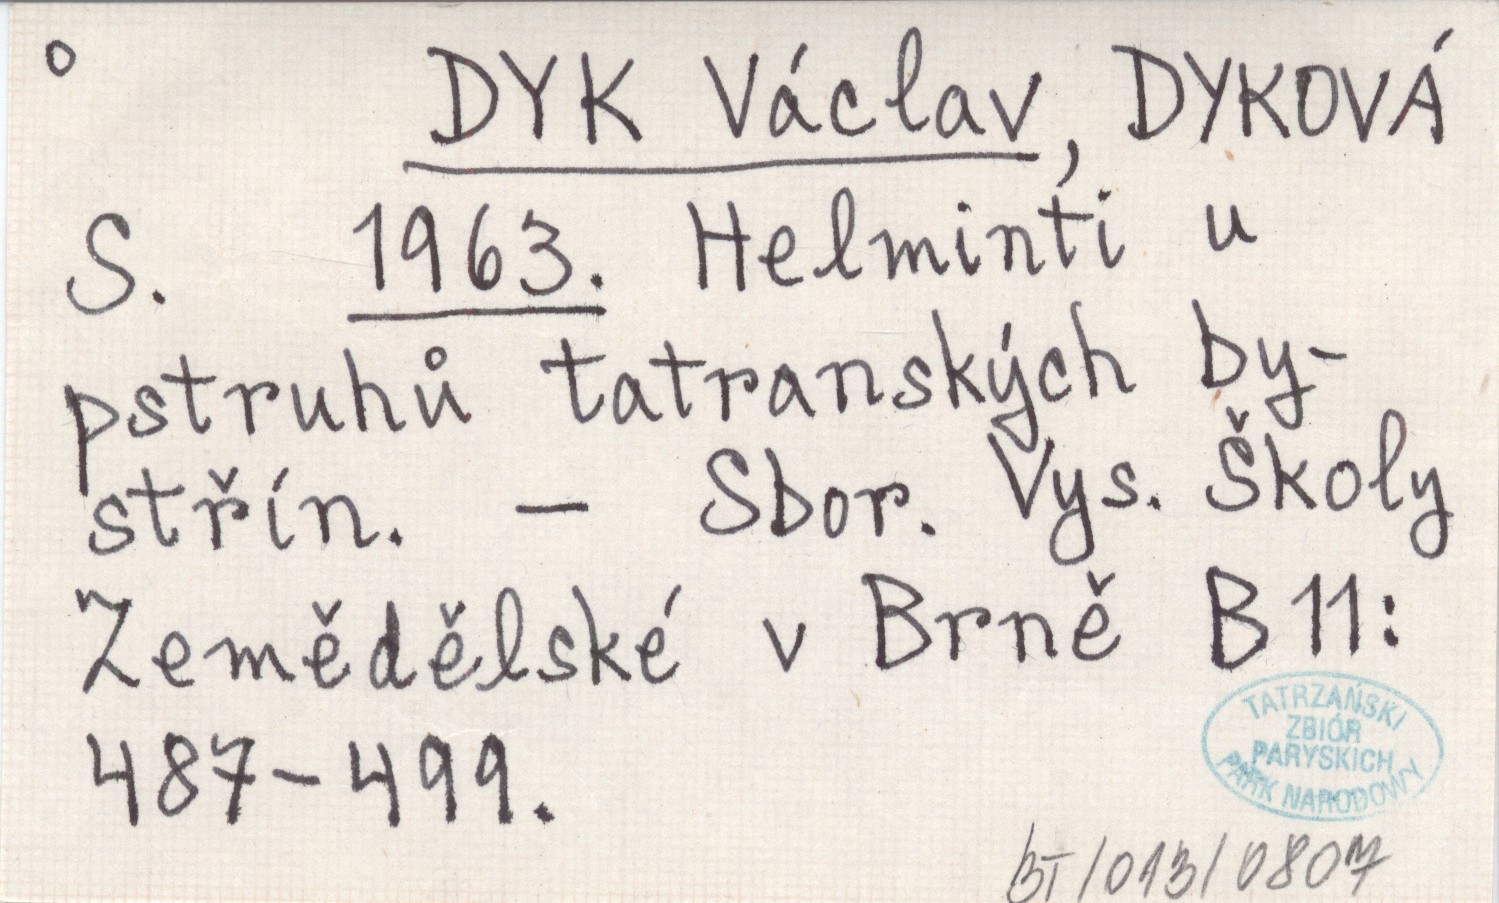 DYK Václav, DYKOVÁ
S. 1963. Helminti u
pstruhů tatranských by-
střin. — Sbor. Vys. Školy
Zemědělské v Brně B 11:
487-499.
TATRZAŃSKI
ZBIÓR
PARYSKICH
PARK NARODOWY
BT/013/0807